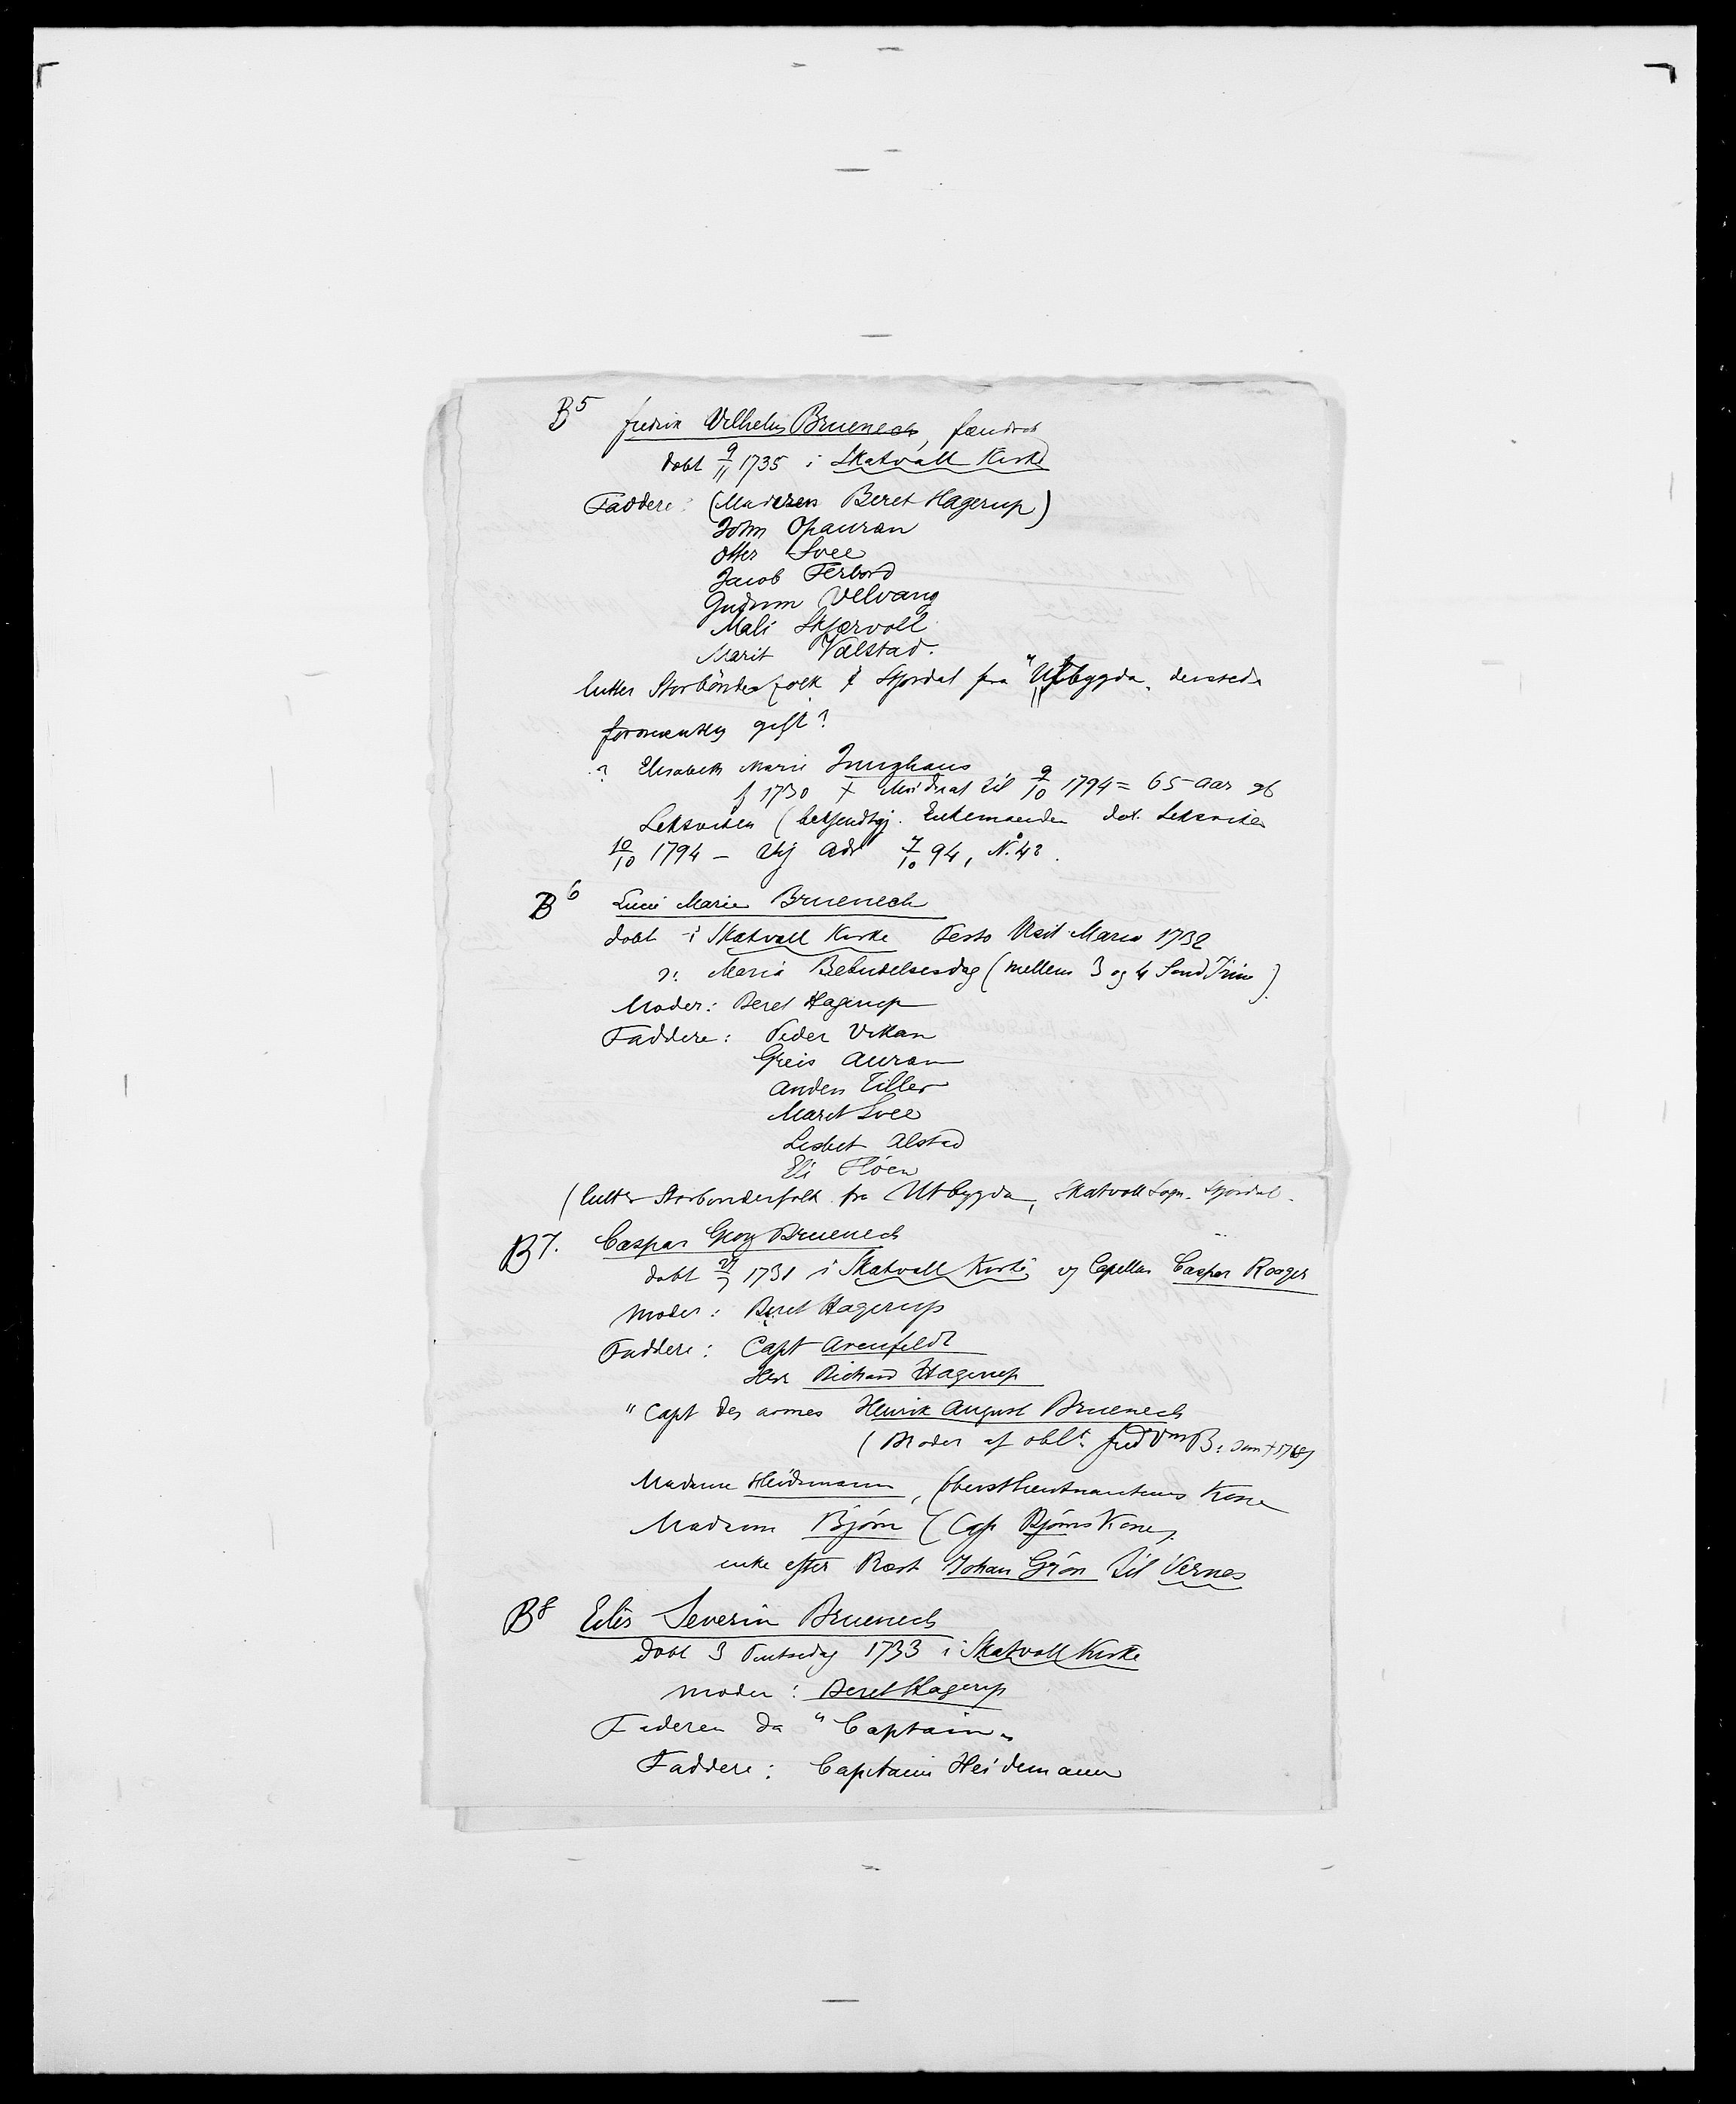 B5 Fredrik Vilhelm Bruenech, fændrik
døbt 9/11 1735 i Skatvall Kirke
Faddere: (Moderen Beret Hagerup)
John Opauran
Otter Svee
Jacob Ferbord
Gudrun Velvang
Mali Skjærvoll
Marit Valstad.
lutter Storbönderfolk i Stjørdal fra "Utbygda" dersteds
formentlig gift?
? Elisabeth Marie Junghans
f 1730 † Mndrat til 9/10 1794 = 65 Aar gl
Leksviken (bekjendtgj. Enkemanden dat. Leksviken
10/10 1794 – Thj Adr 7/10 94, N. 43.
B6 Lucie Marie Bruenech
døbt i Skatvall Kirke Festo Visit Maria 1732
ɔ: Mariá Bebudelsesdag (mellem 3 og 4 Sønd Trin)
Moder: Beret Hagerup
Faddere: Peder Vikan
Greis Auran
Anders Tiller
Maret Svee
Lisbet Alstad
Eli Höen
(lutter Storbønderfolk fra Utbygda, Skatvoll Sogn. Stjørdal.
B7. Caspar Georg Bruenech
døbt 27/7 1731 i Skatvall Kirke, af Capellan Caspar Roager
Moder: Beret Hagerup
Faddere: Capt Arenfeldt
Herr Richard Hagerup
" Capt des armes Henrik August Bruenech
(Broder af oblt. Fred Vm B: som † 1768)
Madame Heidemann, Oberstlieutnantens Kone
Madame Björn (Capt Björns Kone,
enke efter Præst Johan Grön til Vernes
B8 Eiler Severin Bruenech
Døbt 3 Pintsedag 1733 i Skatvoll Kirke
Moder: Beret Hagerup
Faderen da "Captain"
Faddere: Captain Heidemann